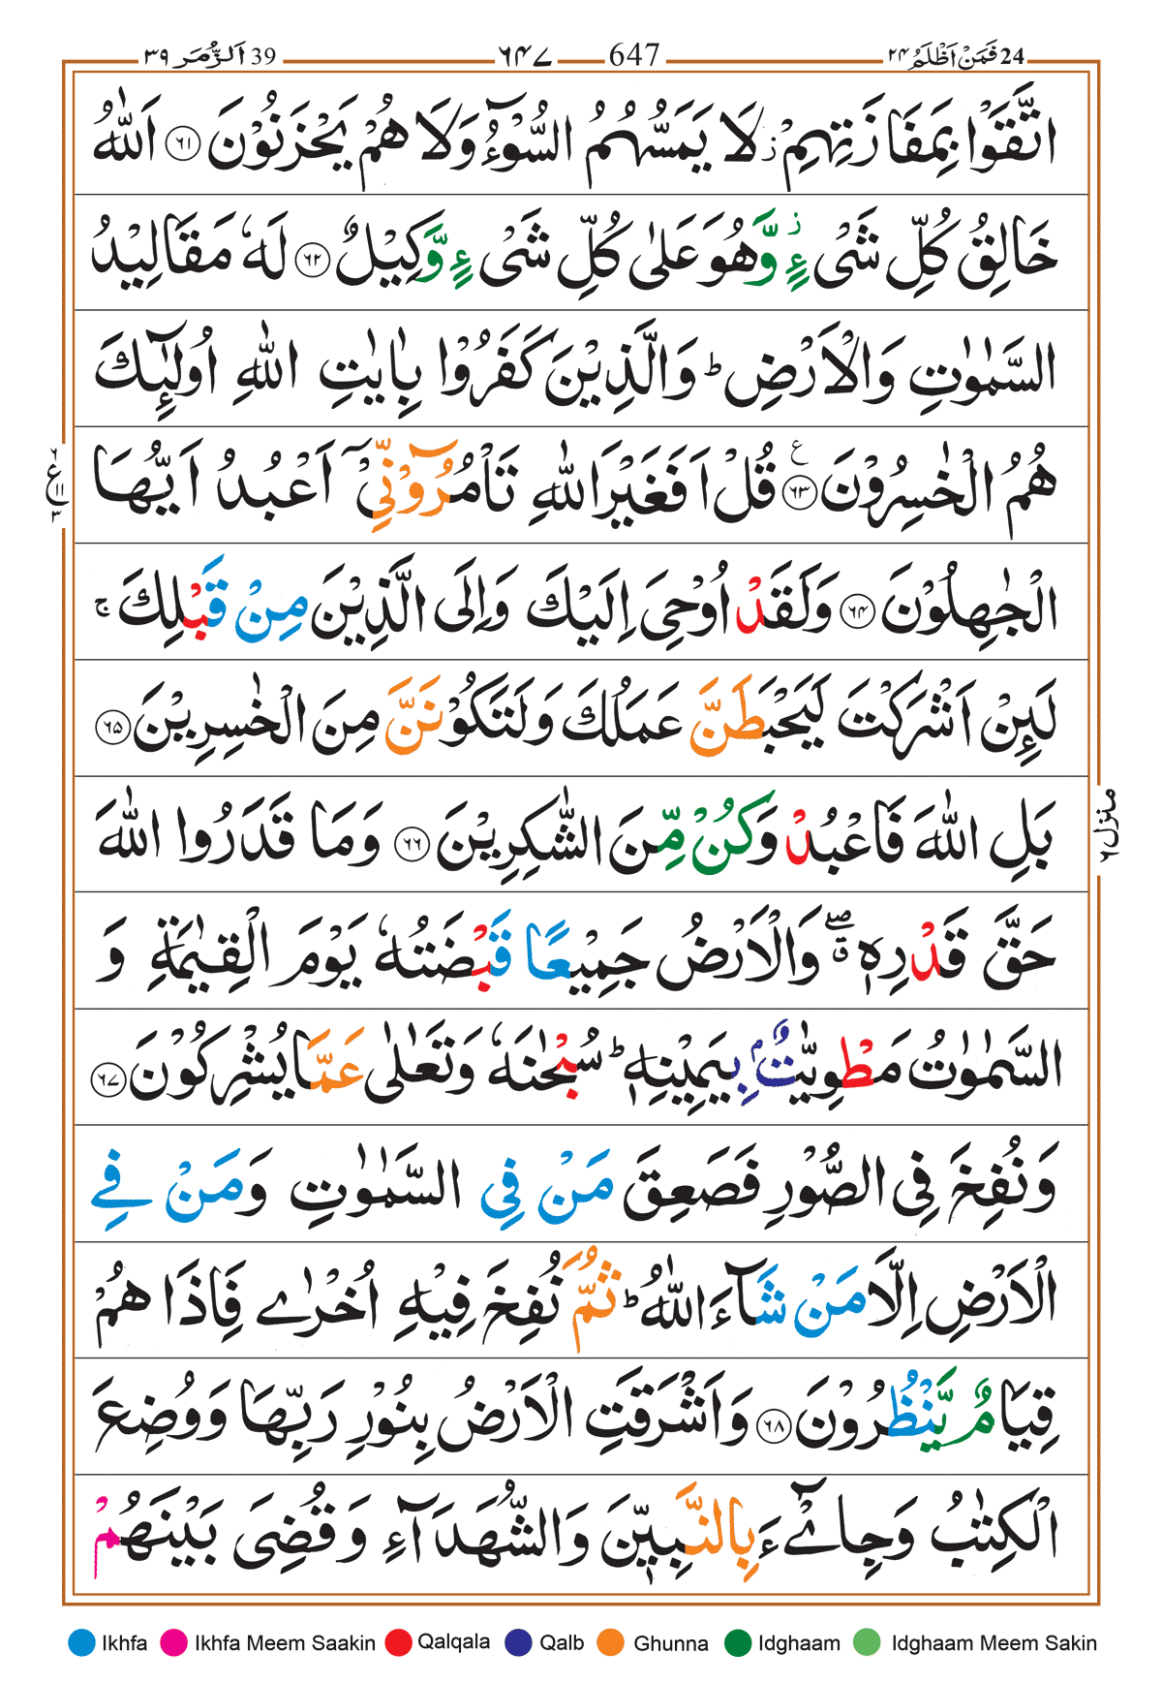 39 اَلزُّمَر ٣٩ ٦٤٧ 647 24 فَمَنْ اَظْلَمُ ٢٤
اتَّقَوْا بِمَفَازَتِهِمْ ز لَا يَمَسُّهُمُ السُّوْٓءُ وَلَا هُمْ يَحْزَنُوْنَ ٦١ اَللّٰهُ
خَالِقُ كُلِّ شَىْءٍ ز وَّهُوَ عَلٰى كُلِّ شَىْءٍ وَّكِيْلٌ ٦٢ لَهٗ مَقَالِيْدُ
السَّمٰوٰتِ وَالْاَرْضِ ؕ وَالَّذِيْنَ كَفَرُوْا بِاٰيٰتِ اللّٰهِ اُولٰٓئِكَ
هُمُ الْخٰسِرُوْنَ ٦٣ ع قُلْ اَفَغَيْرَ اللّٰهِ تَاْمُرُوْٓنِّىْٓ اَعْبُدُ اَيُّهَا
٢ ع ١١ ٣
الْجٰهِلُوْنَ ٦٤ وَلَقَدْ اُوْحِىَ اِلَيْكَ وَاِلَى الَّذِيْنَ مِنْ قَبْلِكَ ۚ
لَئِنْ اَشْرَكْتَ لَيَحْبَطَنَّ عَمَلُكَ وَلَتَكُوْنَنَّ مِنَ الْخٰسِرِيْنَ ٦٥
بَلِ اللّٰهَ فَاعْبُدْ وَكُنْ مِّنَ الشّٰكِرِيْنَ ٦٦ وَمَا قَدَرُوا اللّٰهَ
منزل ٦
حَقَّ قَدْرِهٖ ۖ ق وَالْاَرْضُ جَمِيْعًا قَبْضَتُهٗ يَوْمَ الْقِيٰمَةِ وَ
السَّمٰوٰتُ مَطْوِيّٰتٌۢ بِيَمِيْنِهٖ ؕ سُبْحٰنَهٗ وَتَعٰلٰى عَمَّا يُشْرِكُوْنَ ٦٧
وَنُفِخَ فِى الصُّوْرِ فَصَعِقَ مَنْ فِى السَّمٰوٰتِ وَمَنْ فِى
الْاَرْضِ اِلَّا مَنْ شَآءَ اللّٰهُ ؕ ثُمَّ نُفِخَ فِيْهِ اُخْرٰى فَاِذَا هُمْ
قِيَامٌ يَّنْظُرُوْنَ ٦٨ وَاَشْرَقَتِ الْاَرْضُ بِنُوْرِ رَبِّهَا وَوُضِعَ
الْكِتٰبُ وَجِاىْٓءَ بِالنَّبِيّٖنَ وَالشُّهَدَآءِ وَقُضِىَ بَيْنَهُمْ
Ikhfa Ikhfa Meem Saakin Qalqala Qalb Ghunna Idghaam Idghaam Meem Sakin